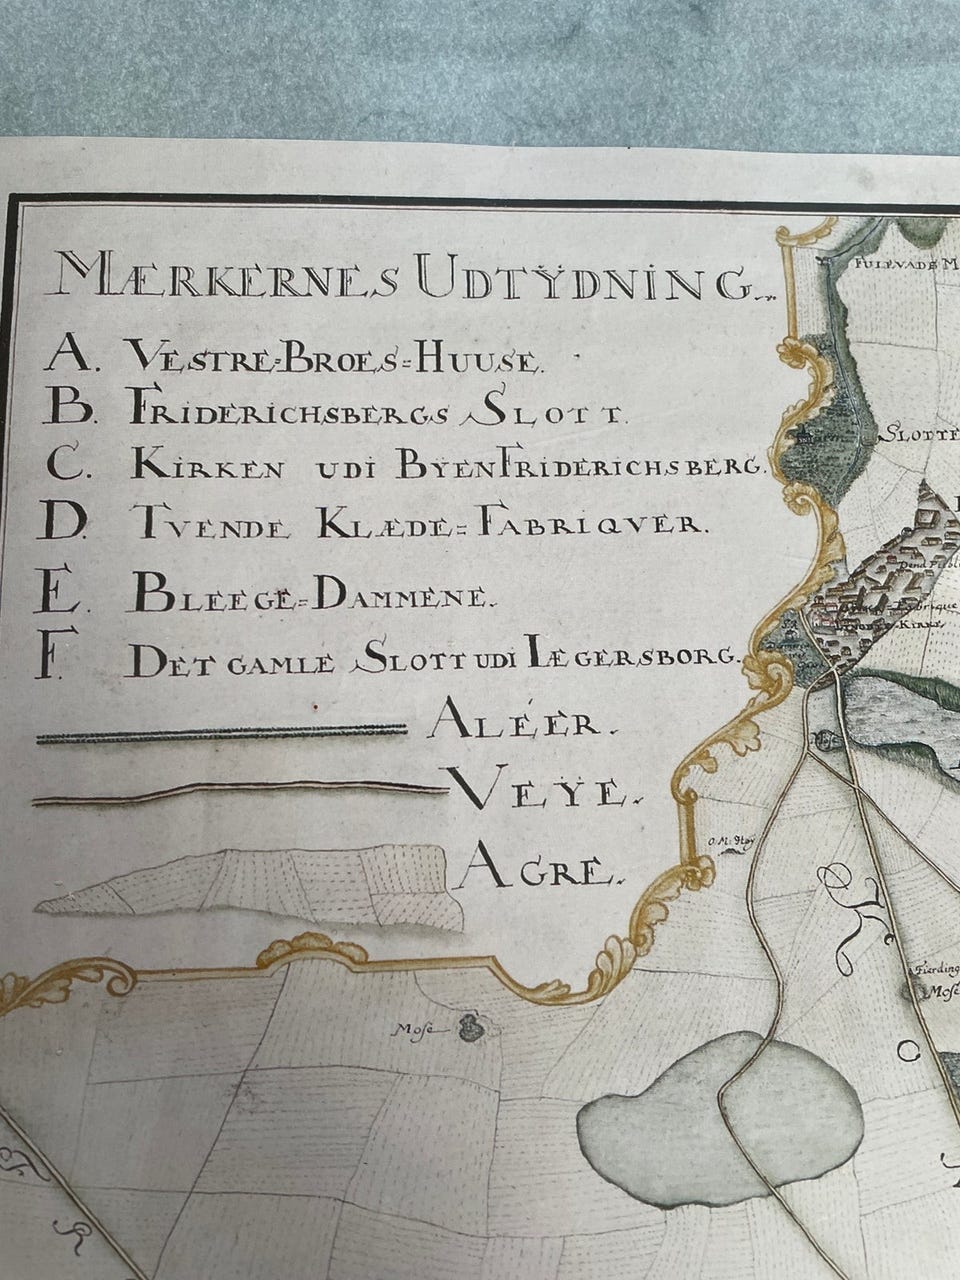 MÆRKERNES UDTŸDNING.
A. VESTRE=BROES=HUUSE.
B. FRIDERICHSBERGS SLOTT.
C. KIRKEN UDI BŸEN FRIDERICHSBERG.
D. TVENDE KLÆDE=FABRIQVER.
E. BLEEGE=DAMMENE.
F. DET GAMLE SLOTT UDI LÆGERSBORG.
ALÉER.
VEŸE.
AGRE.
FULEVADS M
SLOTTE
Mose
Fierding
Mose